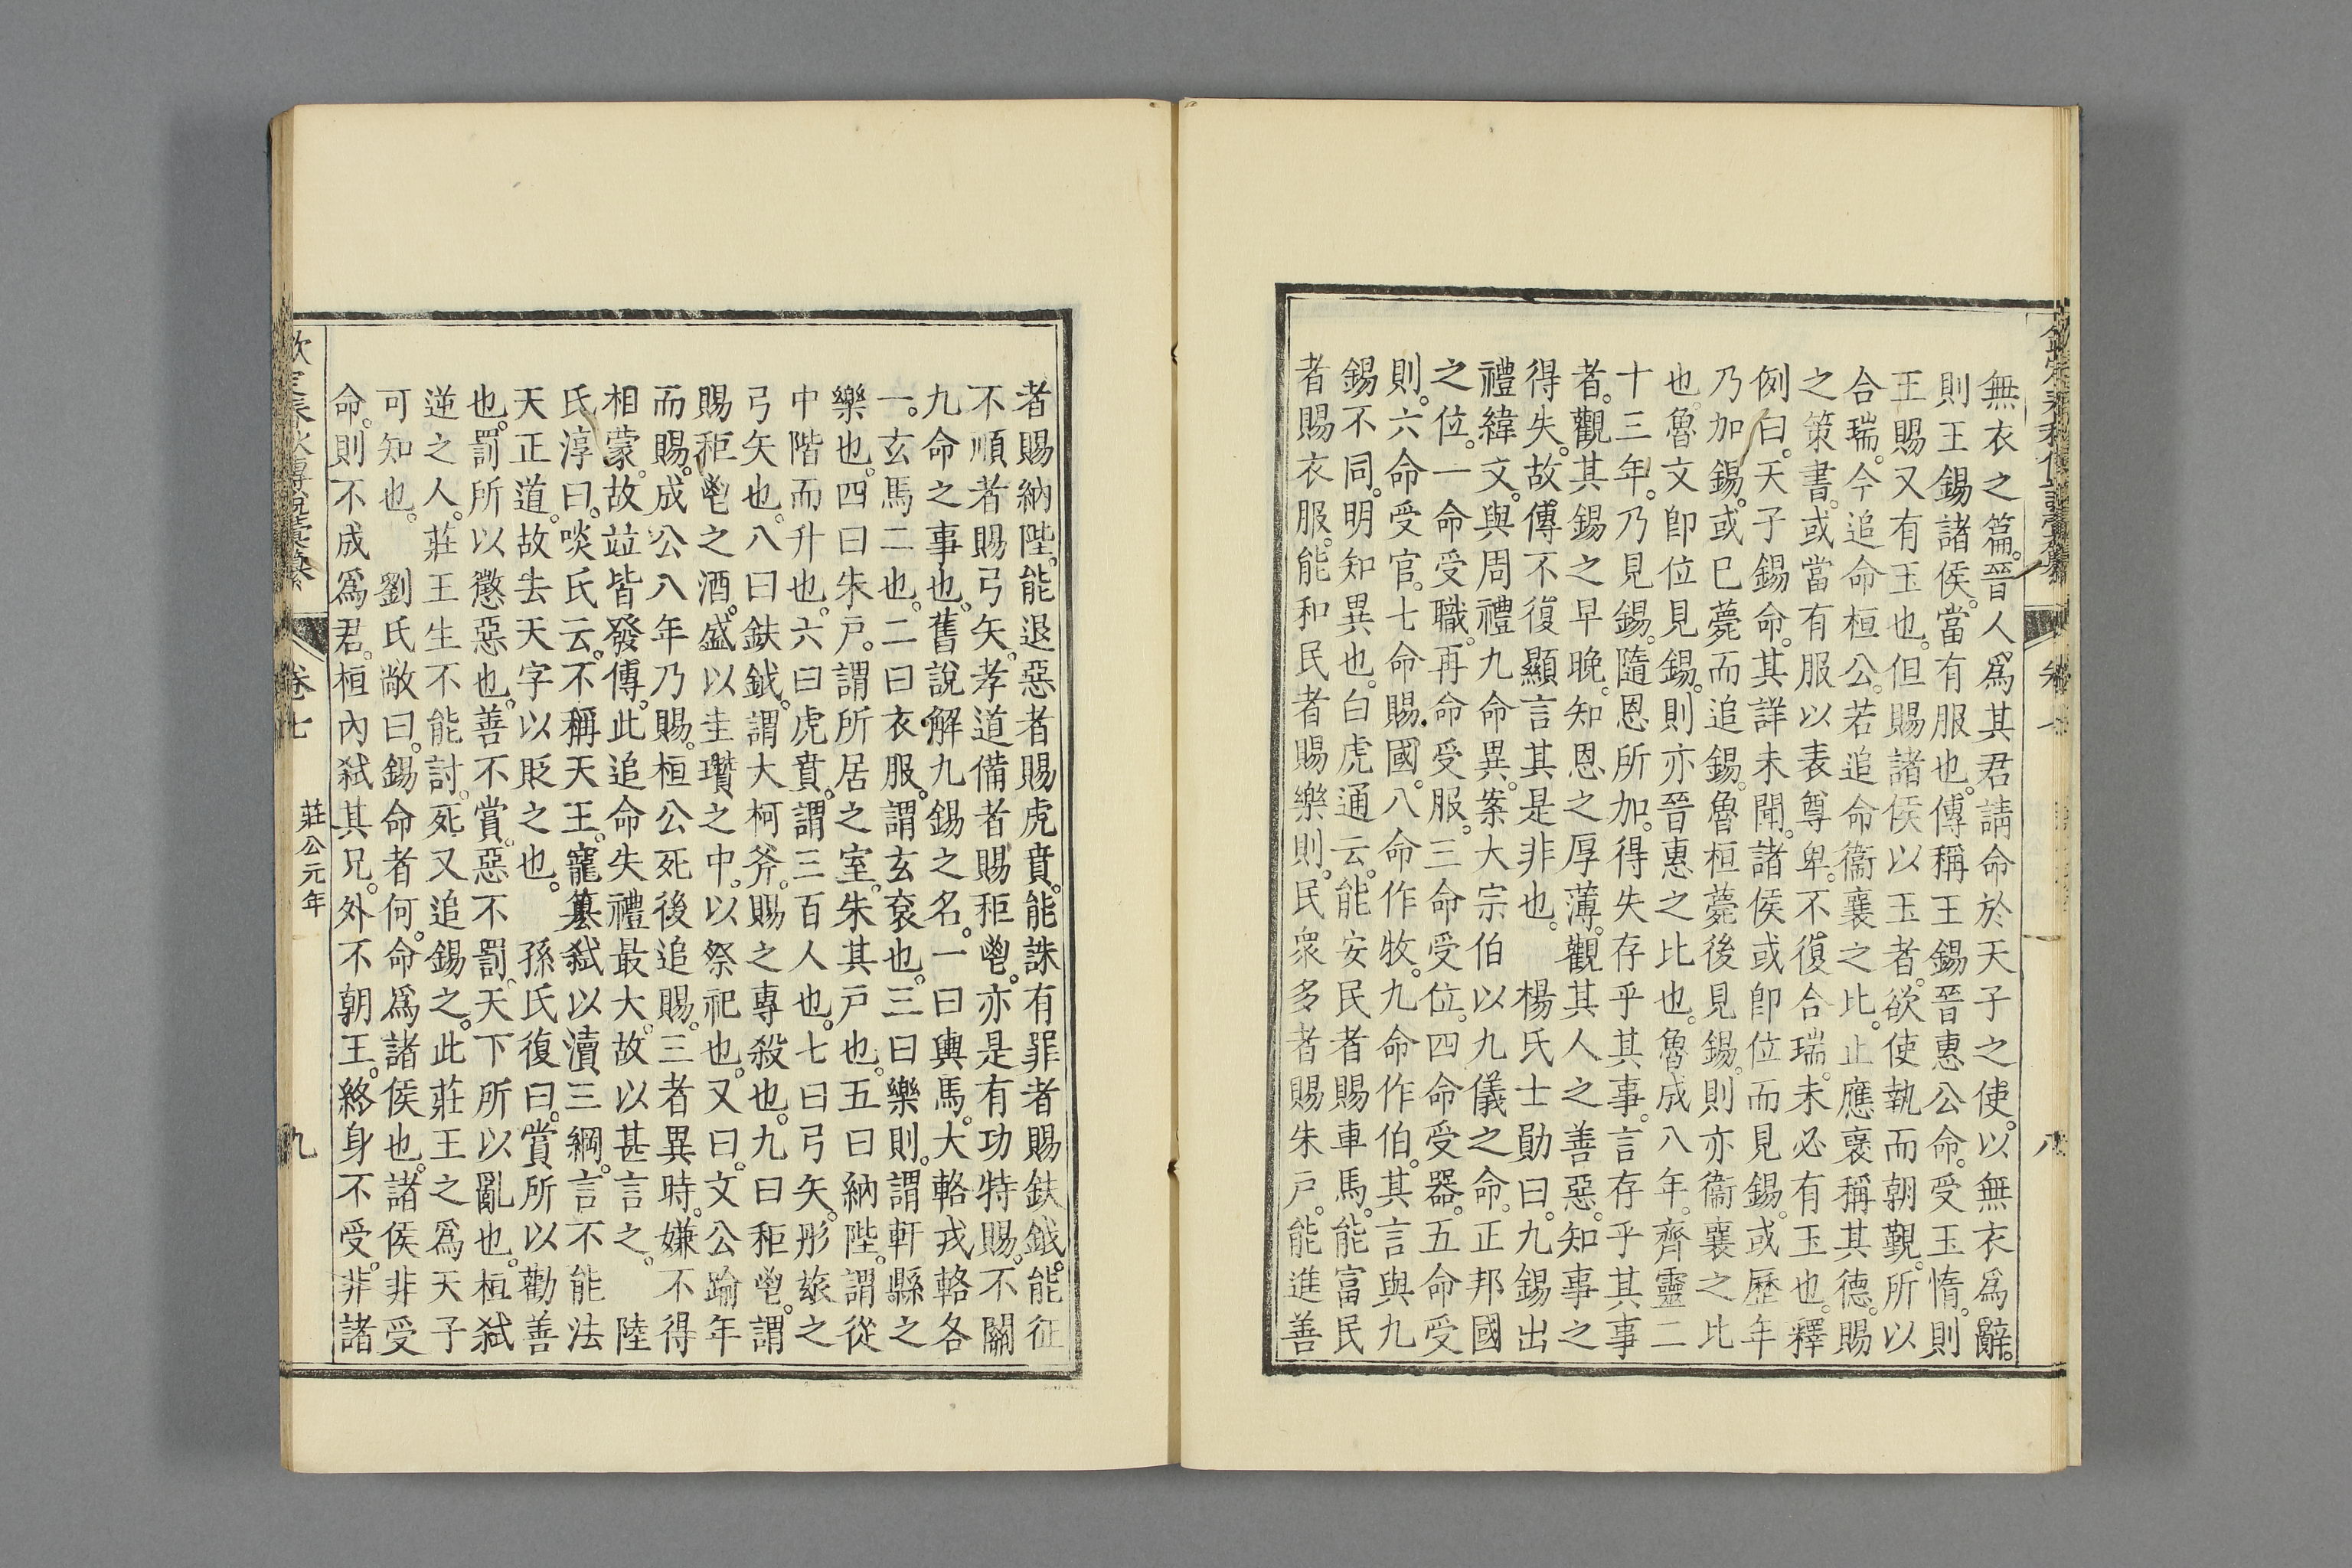 欽定春秋傳說彙纂　卷七　八
無衣之篇。晉人爲其君請命於天子之使。以無衣爲辭。
則王錫諸侯。當有服也。傳稱王錫晉惠公命。受玉惰。則
王賜又有玉也。但賜諸侯以玉者。欲使執而朝覲。所以
合瑞。今追命桓公。若追命衞襄之比。止應襃稱其德。賜
之策書。或當有服以表尊卑。不復合瑞。未必有玉也。釋
例曰。天子錫命。其詳未聞。諸侯或卽位而見錫。或歷年
乃加錫。或已薨而追錫。魯桓薨後見錫。則亦衞襄之比
也。魯文卽位見錫。則亦晉惠之比也。魯成八年。齊靈二
十三年。乃見錫。隨恩所加。得失存乎其事。言存乎其事
者。觀其錫之早晚。知恩之厚薄。觀其人之善惡。知事之
得失。故傳不復顯言其是非也。　楊氏士勛曰。九錫出
禮緯文。與周禮九命異。案大宗伯以九儀之命。正邦國
之位。一命受職。再命受服。三命受位。四命受器。五命受
則。六命受官。七命賜國。八命作牧。九命作伯。其言與九
錫不同。明知異也。白虎通云。能安民者賜車馬。能富民
者賜衣服。能和民者賜樂則。民衆多者賜朱戶。能進善
者賜納陛。能退惡者賜虎賁。能誅有罪者賜鈇鉞。能征
不順者賜弓矢。孝道備者賜秬鬯。亦是有功特賜。不關
九命之事也。舊說解九錫之名。一曰輿馬。大輅戎輅各
一。玄馬二也。二曰衣服。謂玄袞也。三曰樂則。謂軒縣之
樂也。四曰朱戶。謂所居之室。朱其戶也。五曰納陛。謂從
中階而升也。六曰虎賁。謂三百人也。七曰弓矢。彤玈之
弓矢也。八曰鈇鉞。謂大柯斧。賜之專殺也。九曰秬鬯。謂
賜秬鬯之酒。盛以圭瓚之中。以祭祀也。又曰。文公踰年
而賜。成公八年乃賜。桓公死後追賜。三者異時。嫌不得
相蒙。故竝皆發傳。此追命失禮最大。故以甚言之。　陸
氏淳曰。啖氏云。不稱天王。寵篡弒以瀆三綱。言不能法
天正道。故去天字以貶之也。　孫氏復曰。賞所以勸善
也。罰所以懲惡也。善不賞。惡不罰。天下所以亂也。桓弒
逆之人。莊王生不能討。死又追錫之。此莊王之爲天子
可知也。　劉氏敞曰。錫命者何。命爲諸侯也。諸侯非受
命。則不成爲君。桓內弒其兄。外不朝王。終身不受。非諸
欽定春秋傳說彙纂　卷七　莊公元年　九